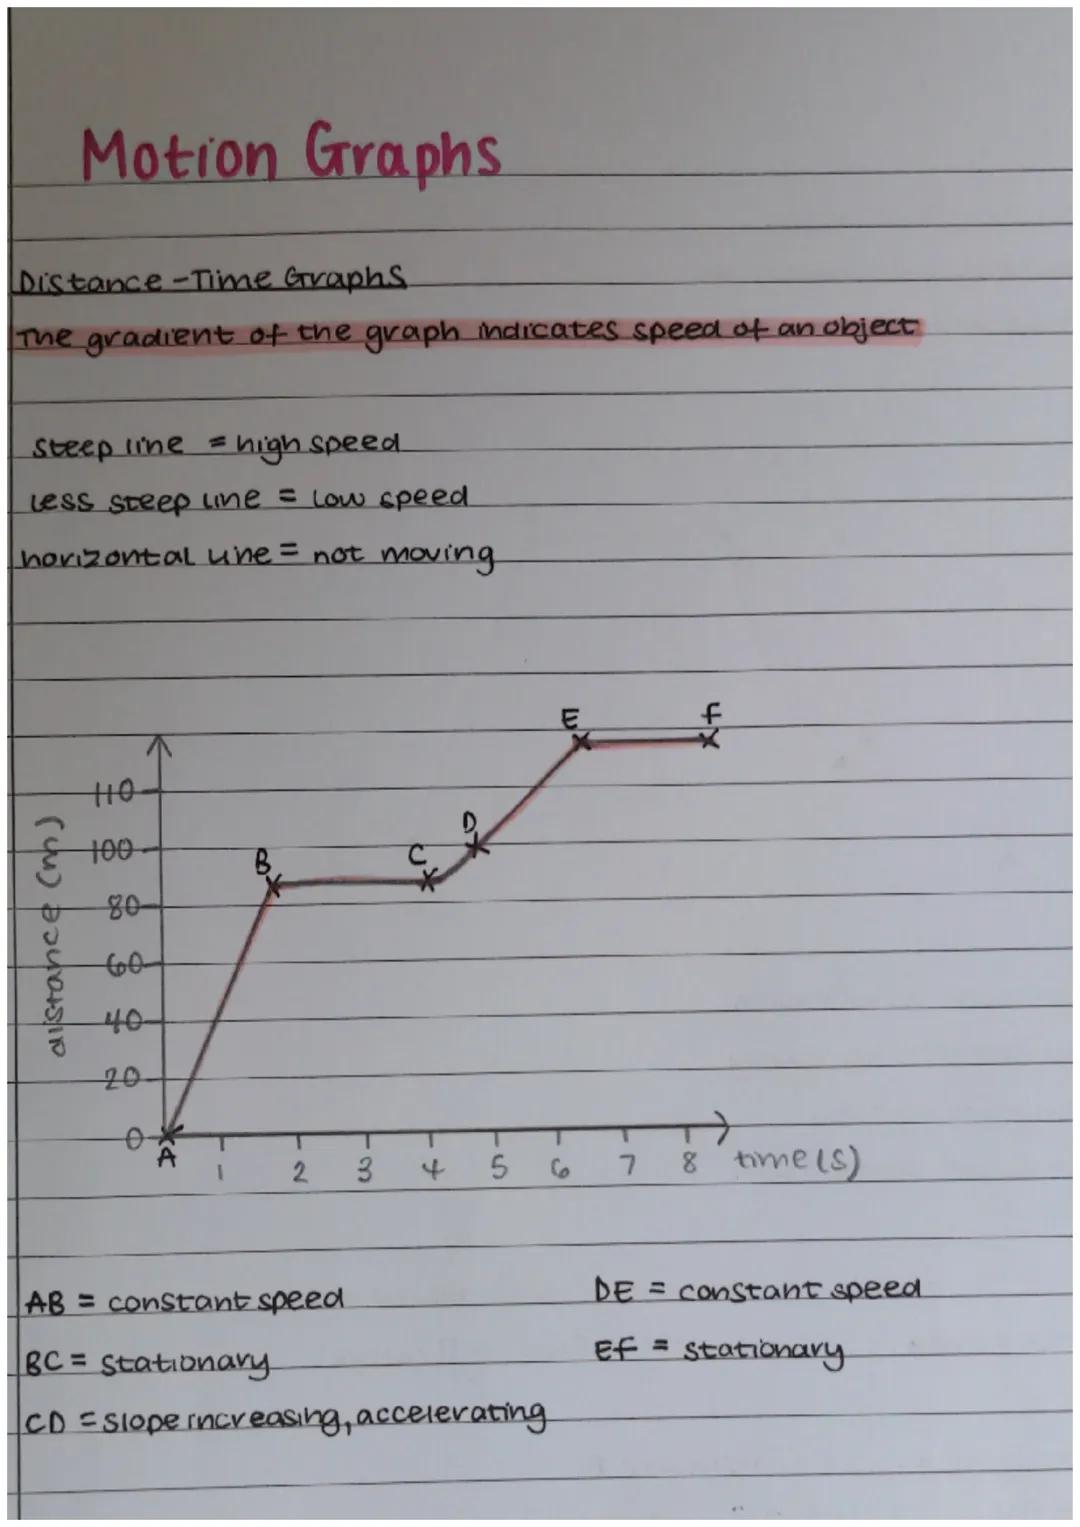 Motion Graphs
Distance-Time Graphs
The gradient of the graph indicates speed of an object
steep line = high speed
less steep line = low speed
horizontal line = not moving
E
F
110
D
100
C
B
80
60
distance (m)
40
20
0
A
1 2 3 4 5 6 7 8 time(s)
AB = constant speed
DE = constant speed
BC = stationary
EF = stationary
CD = slope increasing, accelerating